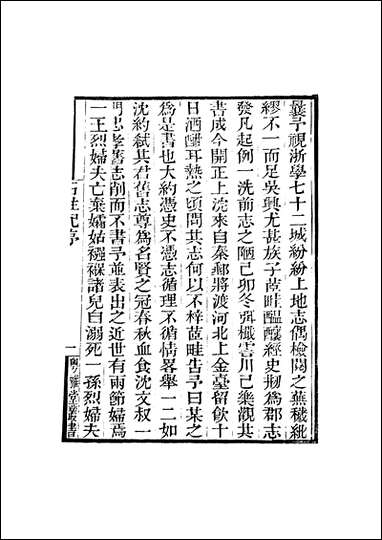 曩予視浙學七十二城紛紛上地志偶檢閱之蕪穢紕
繆不一而足吳興尤甚族子葑畦醞釀經史刱為郡志
發凡起例一洗前志之陋己卯冬弭檝霅川已樂觀其
書成今開正上浣來自秦郵將渡河北上金臺留飲十
日酒酣耳熱之頃問其志何以不梓葑畦告予曰某之
為是書也大約憑史不憑志循理不循情畧舉一二如
沈約弒其君舊志尊為名賢之冠春秋血食沈文叔一
門忠孝舊志削而不書予並表出之近世有兩節婦焉
一王烈婦夫亡棄孀姑襁褓諸兒自溺死一孫烈婦夫
石柱記序
一